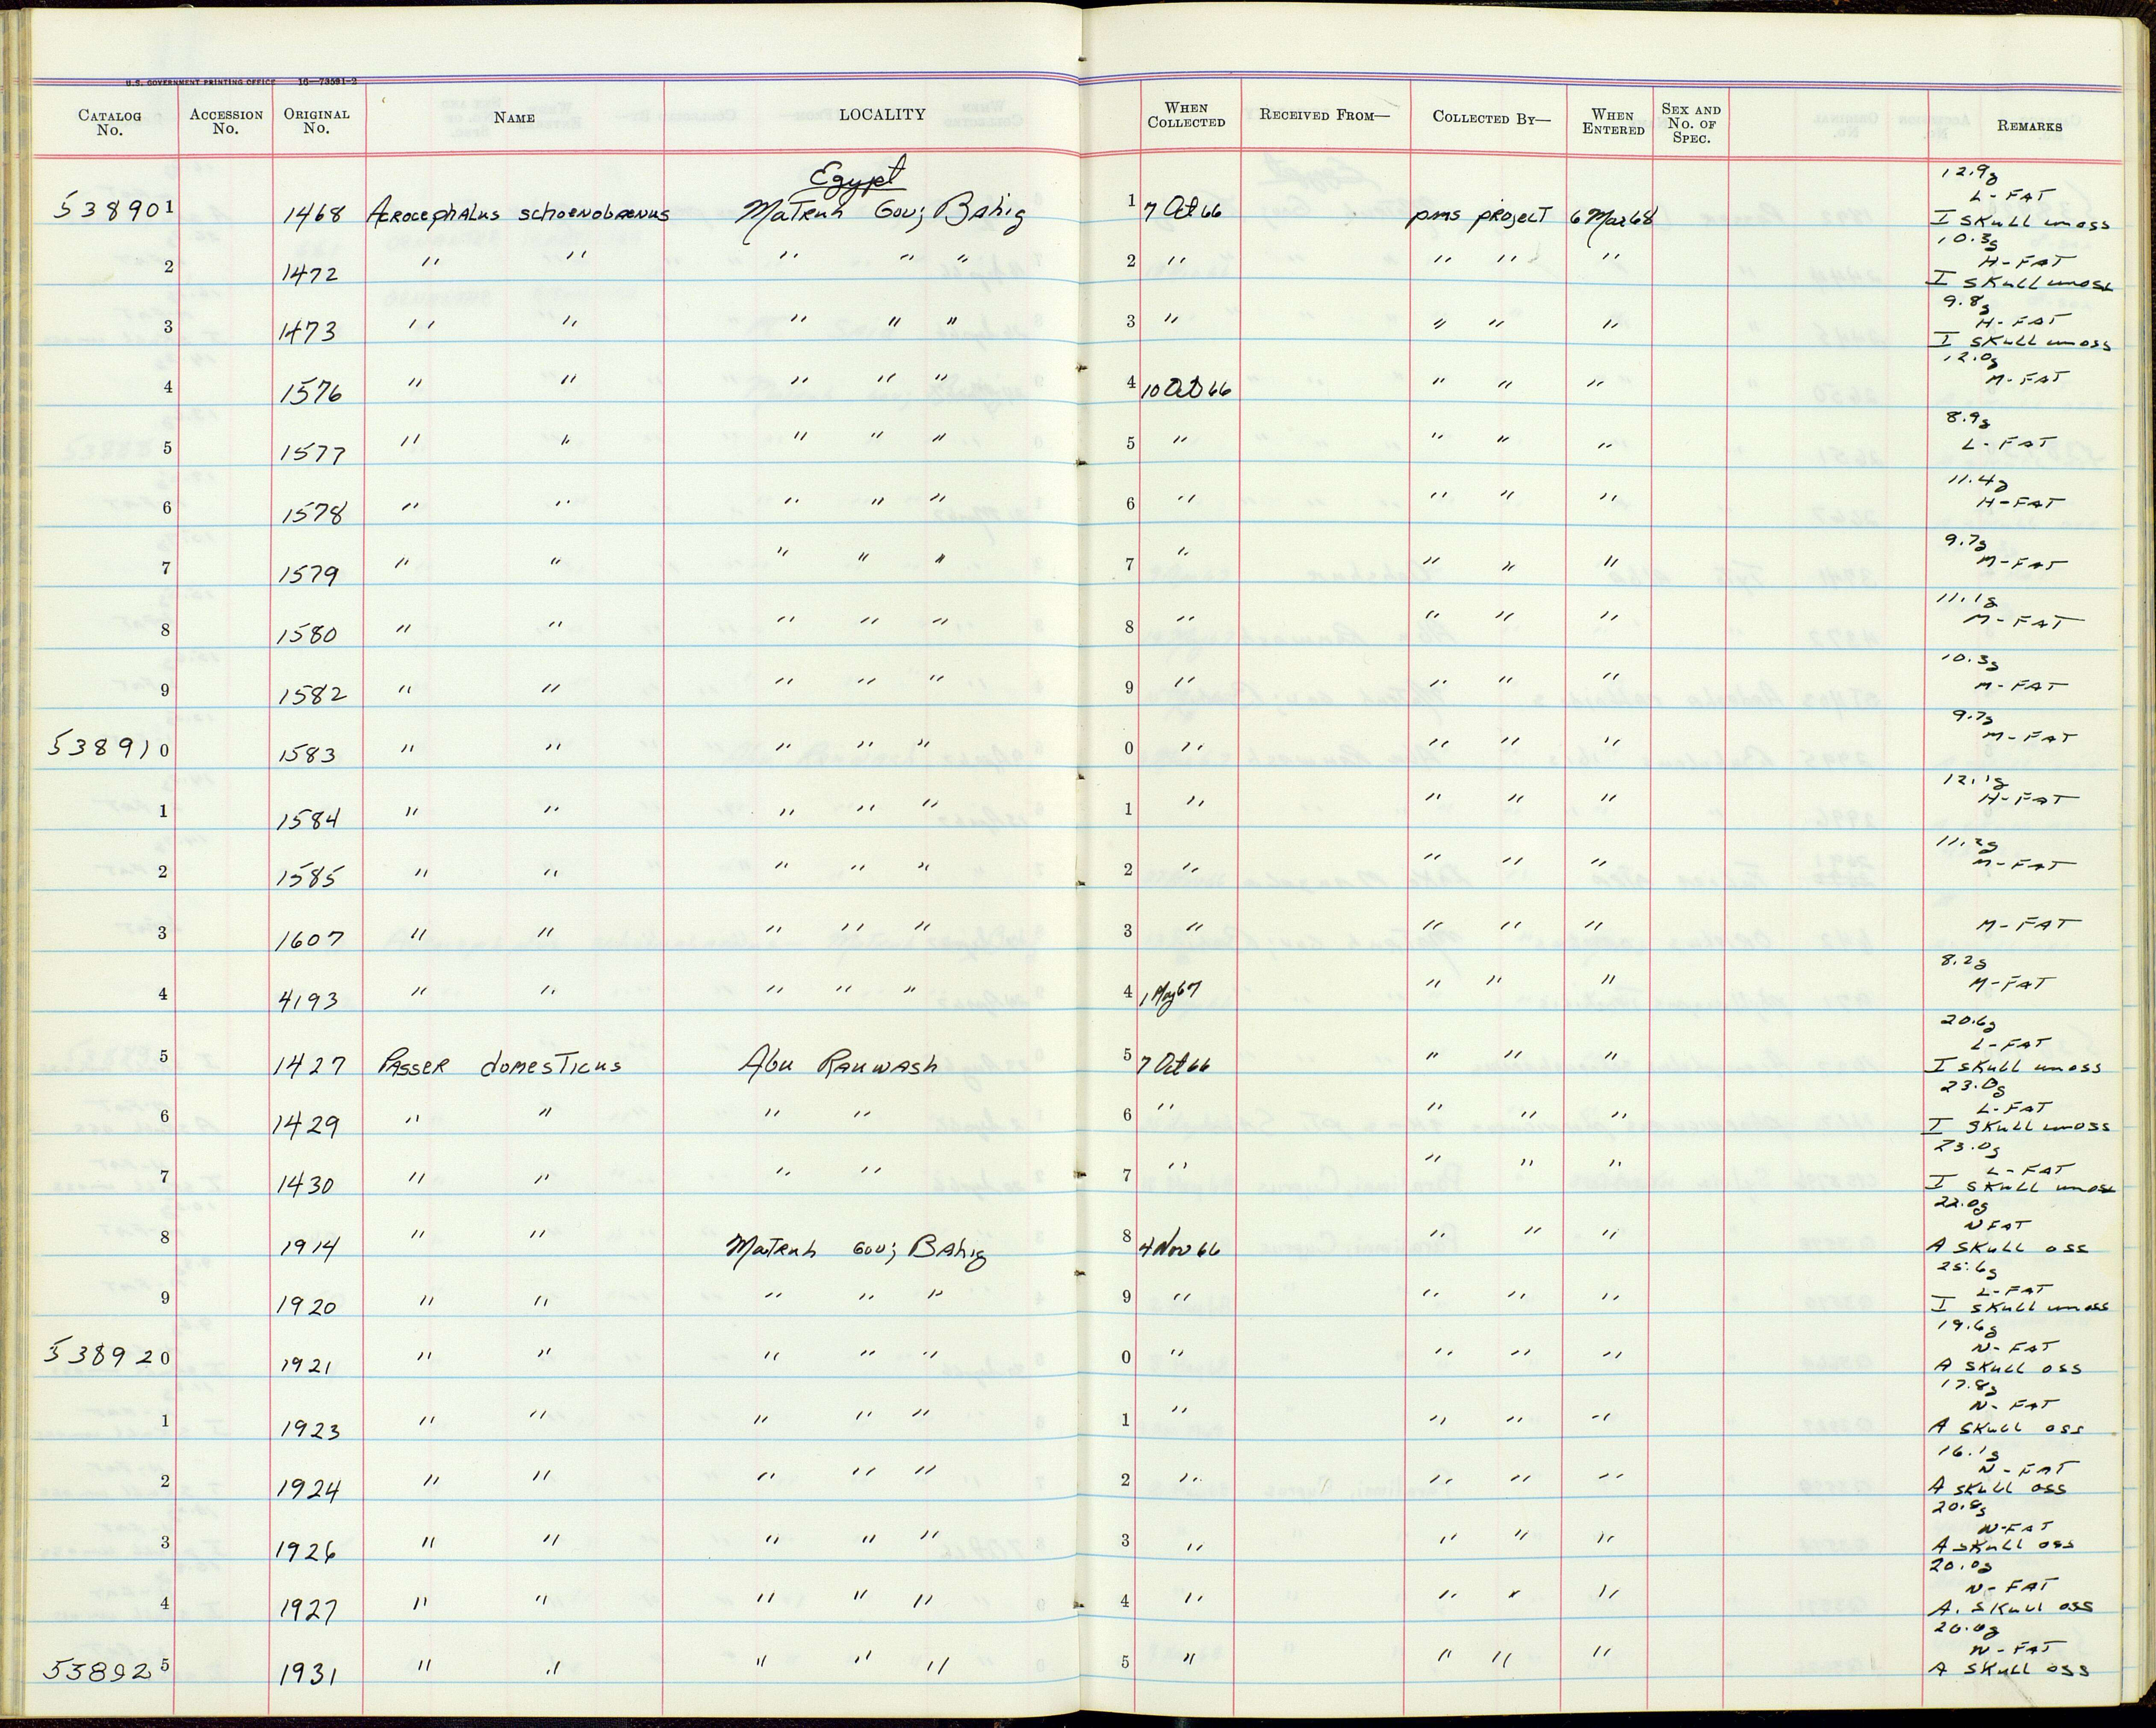 U.S. GOVERNMENT PRINTING OFFICE 16—73591-2
CATALOG No. ACCESSION No. ORIGINAL No. NAME LOCALITY WHEN COLLECTED RECEIVED FROM— COLLECTED BY— WHEN ENTERED SEX AND No. OF SPEC. REMARKS
Egypt
538901 1468 Acrocephalus schoenobaenus Matruh Gov; Bahig 1 7 Oct 66 pms project 6 Mar 68 12.9g L-FAT I skull unoss
2 1472 " " " " " 2 " " " " 10.3g H-FAT I skull unoss
3 1473 " " " " " 3 " " " " 9.8g H-FAT I skull unoss
4 1576 " " " " " 4 10 Oct 66 " " " 12.0g M-FAT
5 1577 " " " " " 5 " " " " 8.9g L-FAT
6 1578 " " " " " 6 " " " " 11.4g H-FAT
7 1579 " " " " " 7 " " " " 9.7g M-FAT
8 1580 " " " " " 8 " " " " 11.1g M-FAT
9 1582 " " " " " 9 " " " " 10.3g M-FAT
538910 1583 " " " " " 0 " " " " 9.7g M-FAT
1 1584 " " " " " 1 " " " " 12.1g H-FAT
2 1585 " " " " " 2 " " " " 11.3g M-FAT
3 1607 " " " " " 3 " " " " M-FAT
4 4193 " " " " " 4 1 May 67 " " " 8.2g M-FAT
5 1427 Passer domesticus Abu Rauwash 5 7 Oct 66 " " " 20.6g L-FAT I skull unoss
6 1429 " " " " 6 " " " " 23.0g L-FAT I skull unoss
7 1430 " " " " 7 " " " " 23.0g L-FAT I skull unoss
8 1914 " " Matruh Gov; Bahig 8 4 Nov 66 " " " 22.0g N FAT A skull oss
9 1920 " " " " " 9 " " " " 25.6g L-FAT I skull unoss
538920 1921 " " " " " 0 " " " " 19.6g N-FAT A skull oss
1 1923 " " " " " 1 " " " " 17.8g N-FAT A skull oss
2 1924 " " " " " 2 " " " " 16.1g N-FAT A skull oss
3 1926 " " " " " 3 " " " " 20.8g N-FAT A skull oss
4 1927 " " " " " 4 " " " " 20.0g N-FAT A. skull oss
538925 1931 " " " " " 5 " " " " 20.0g N-FAT A skull oss